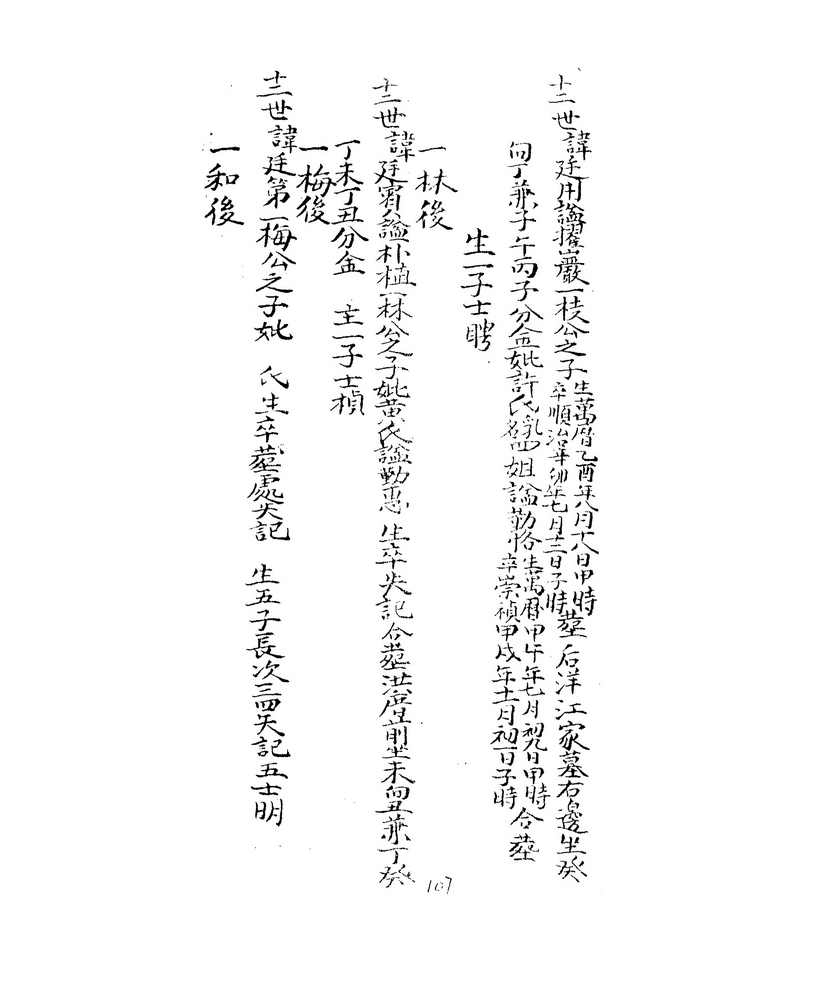 十二世諱廷用諡擢岩巖一枝公之子生萬曆乙酉年八月十八日甲時
卒順治辛卯年七月十三日子時葬后洋江家墓右邊坐癸
向丁兼子午丙子分金妣許氏乳名四姐諡勤恪生萬曆甲午年七月初九日甲時
卒崇禎甲戌年十一月初一日子時合葬
生一子士聘
一林後
十二世諱廷宵公諡朴植一林公之子妣黃氏諡勤惠 生卒失記合葬洪厝前坐未向丑兼丁癸
丁未丁丑分金 主一子士楨
一梅後
十二世諱廷第一梅公之子妣 氏生卒葬處失記 生五子長次三四失記五士明
一和後
107